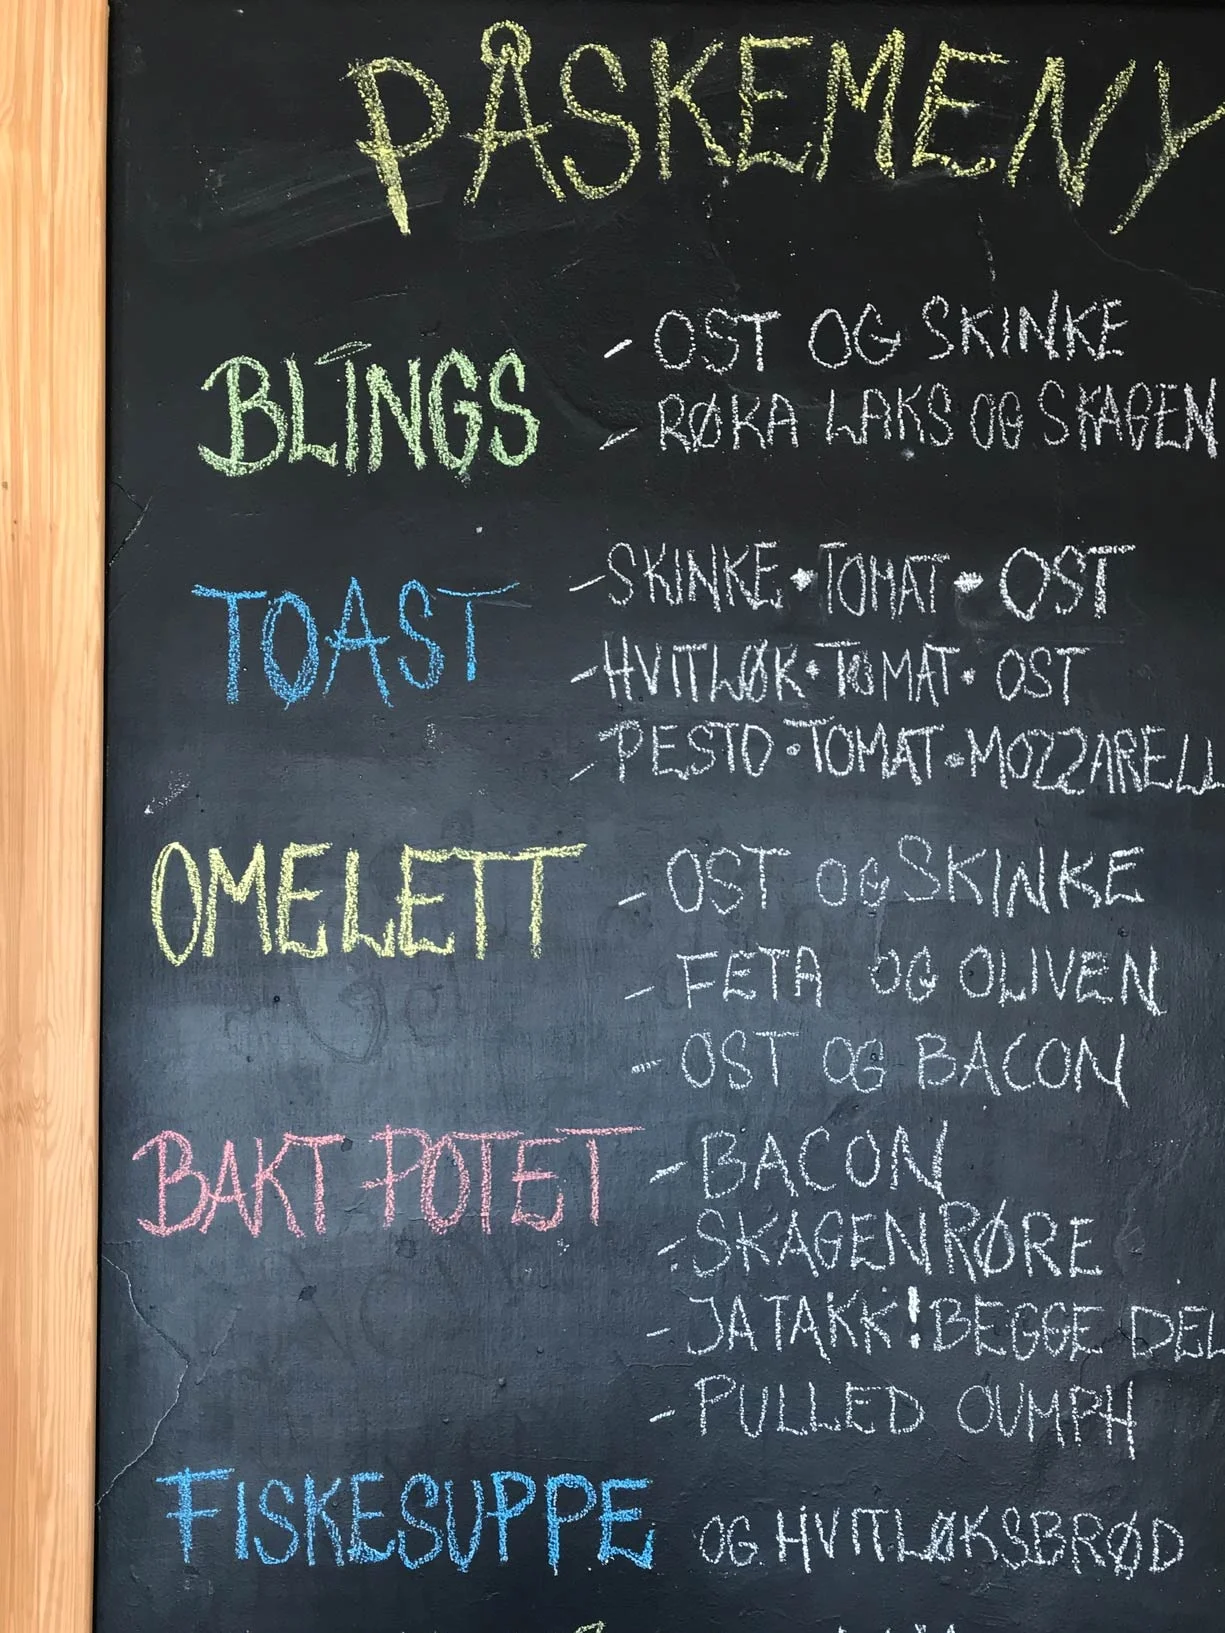 PÅSKEMENY
BLINGS - OST OG SKINKE
- RØKA LAKS OG SKAGEN
TOAST - SKINKE • TOMAT • OST
- HVITLØK • TOMAT • OST
- PESTO • TOMAT • MOZZARELL
OMELETT - OST OG SKINKE
- FETA OG OLIVEN
- OST OG BACON
BAKT POTET - BACON
- SKAGENRØRE
- JA TAKK! BEGGE DEL
- PULLED OUMPH
FISKESUPPE OG HVITLØKSBRØD